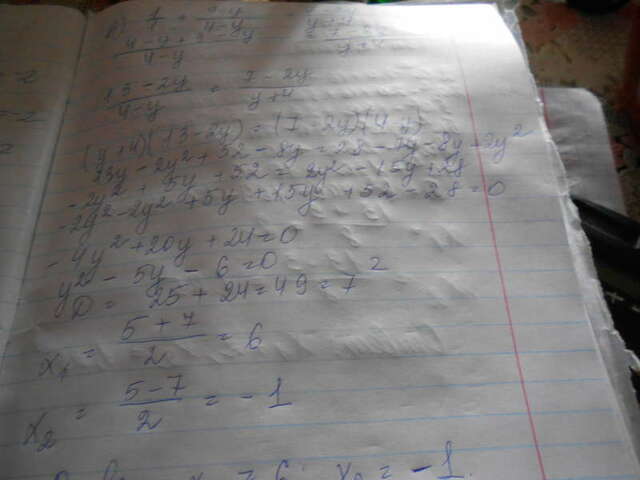 4-y
(13-2y)/(4-y) = (7-2y)/(y+4)
(y+4)(13-2y) = (7-2y)(4-y)
13y - 2y² + 52 - 8y = 28 - 7y - 8y + 2y²
-2y² + 5y + 52 = 2y² - 15y + 28
-2y² - 2y² + 5y + 15y + 52 - 28 = 0
-4y² + 20y + 24 = 0
y² - 5y - 6 = 0
D = 25 + 24 = 49 = 7²
x₁ = (5+7)/2 = 6
x₂ = (5-7)/2 = -1
= 6; x₂ = -1.